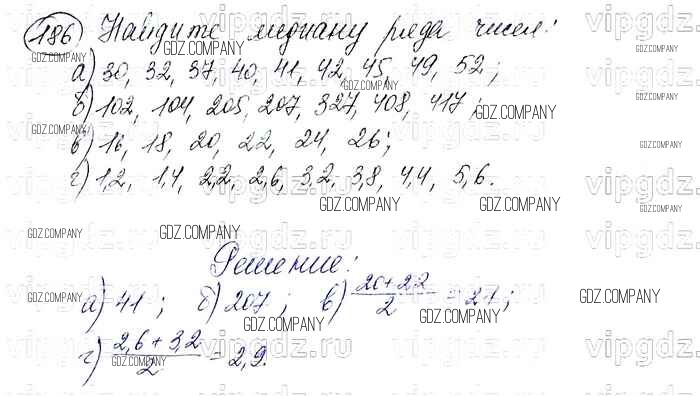 186 Найдите медиану ряда чисел:
а) 30, 32, 37, 40, 41, 42, 45, 49, 52;
б) 102, 104, 205, 207, 327, 408, 417;
в) 16, 18, 20, 22, 24, 26;
г) 1,2, 1,4, 2,2, 2,6, 3,2, 3,8, 4,4, 5,6.
Решение:
а) 41; б) 207; в) (20+22)/2 = 21;
г) (2,6+3,2)/2 = 2,9.